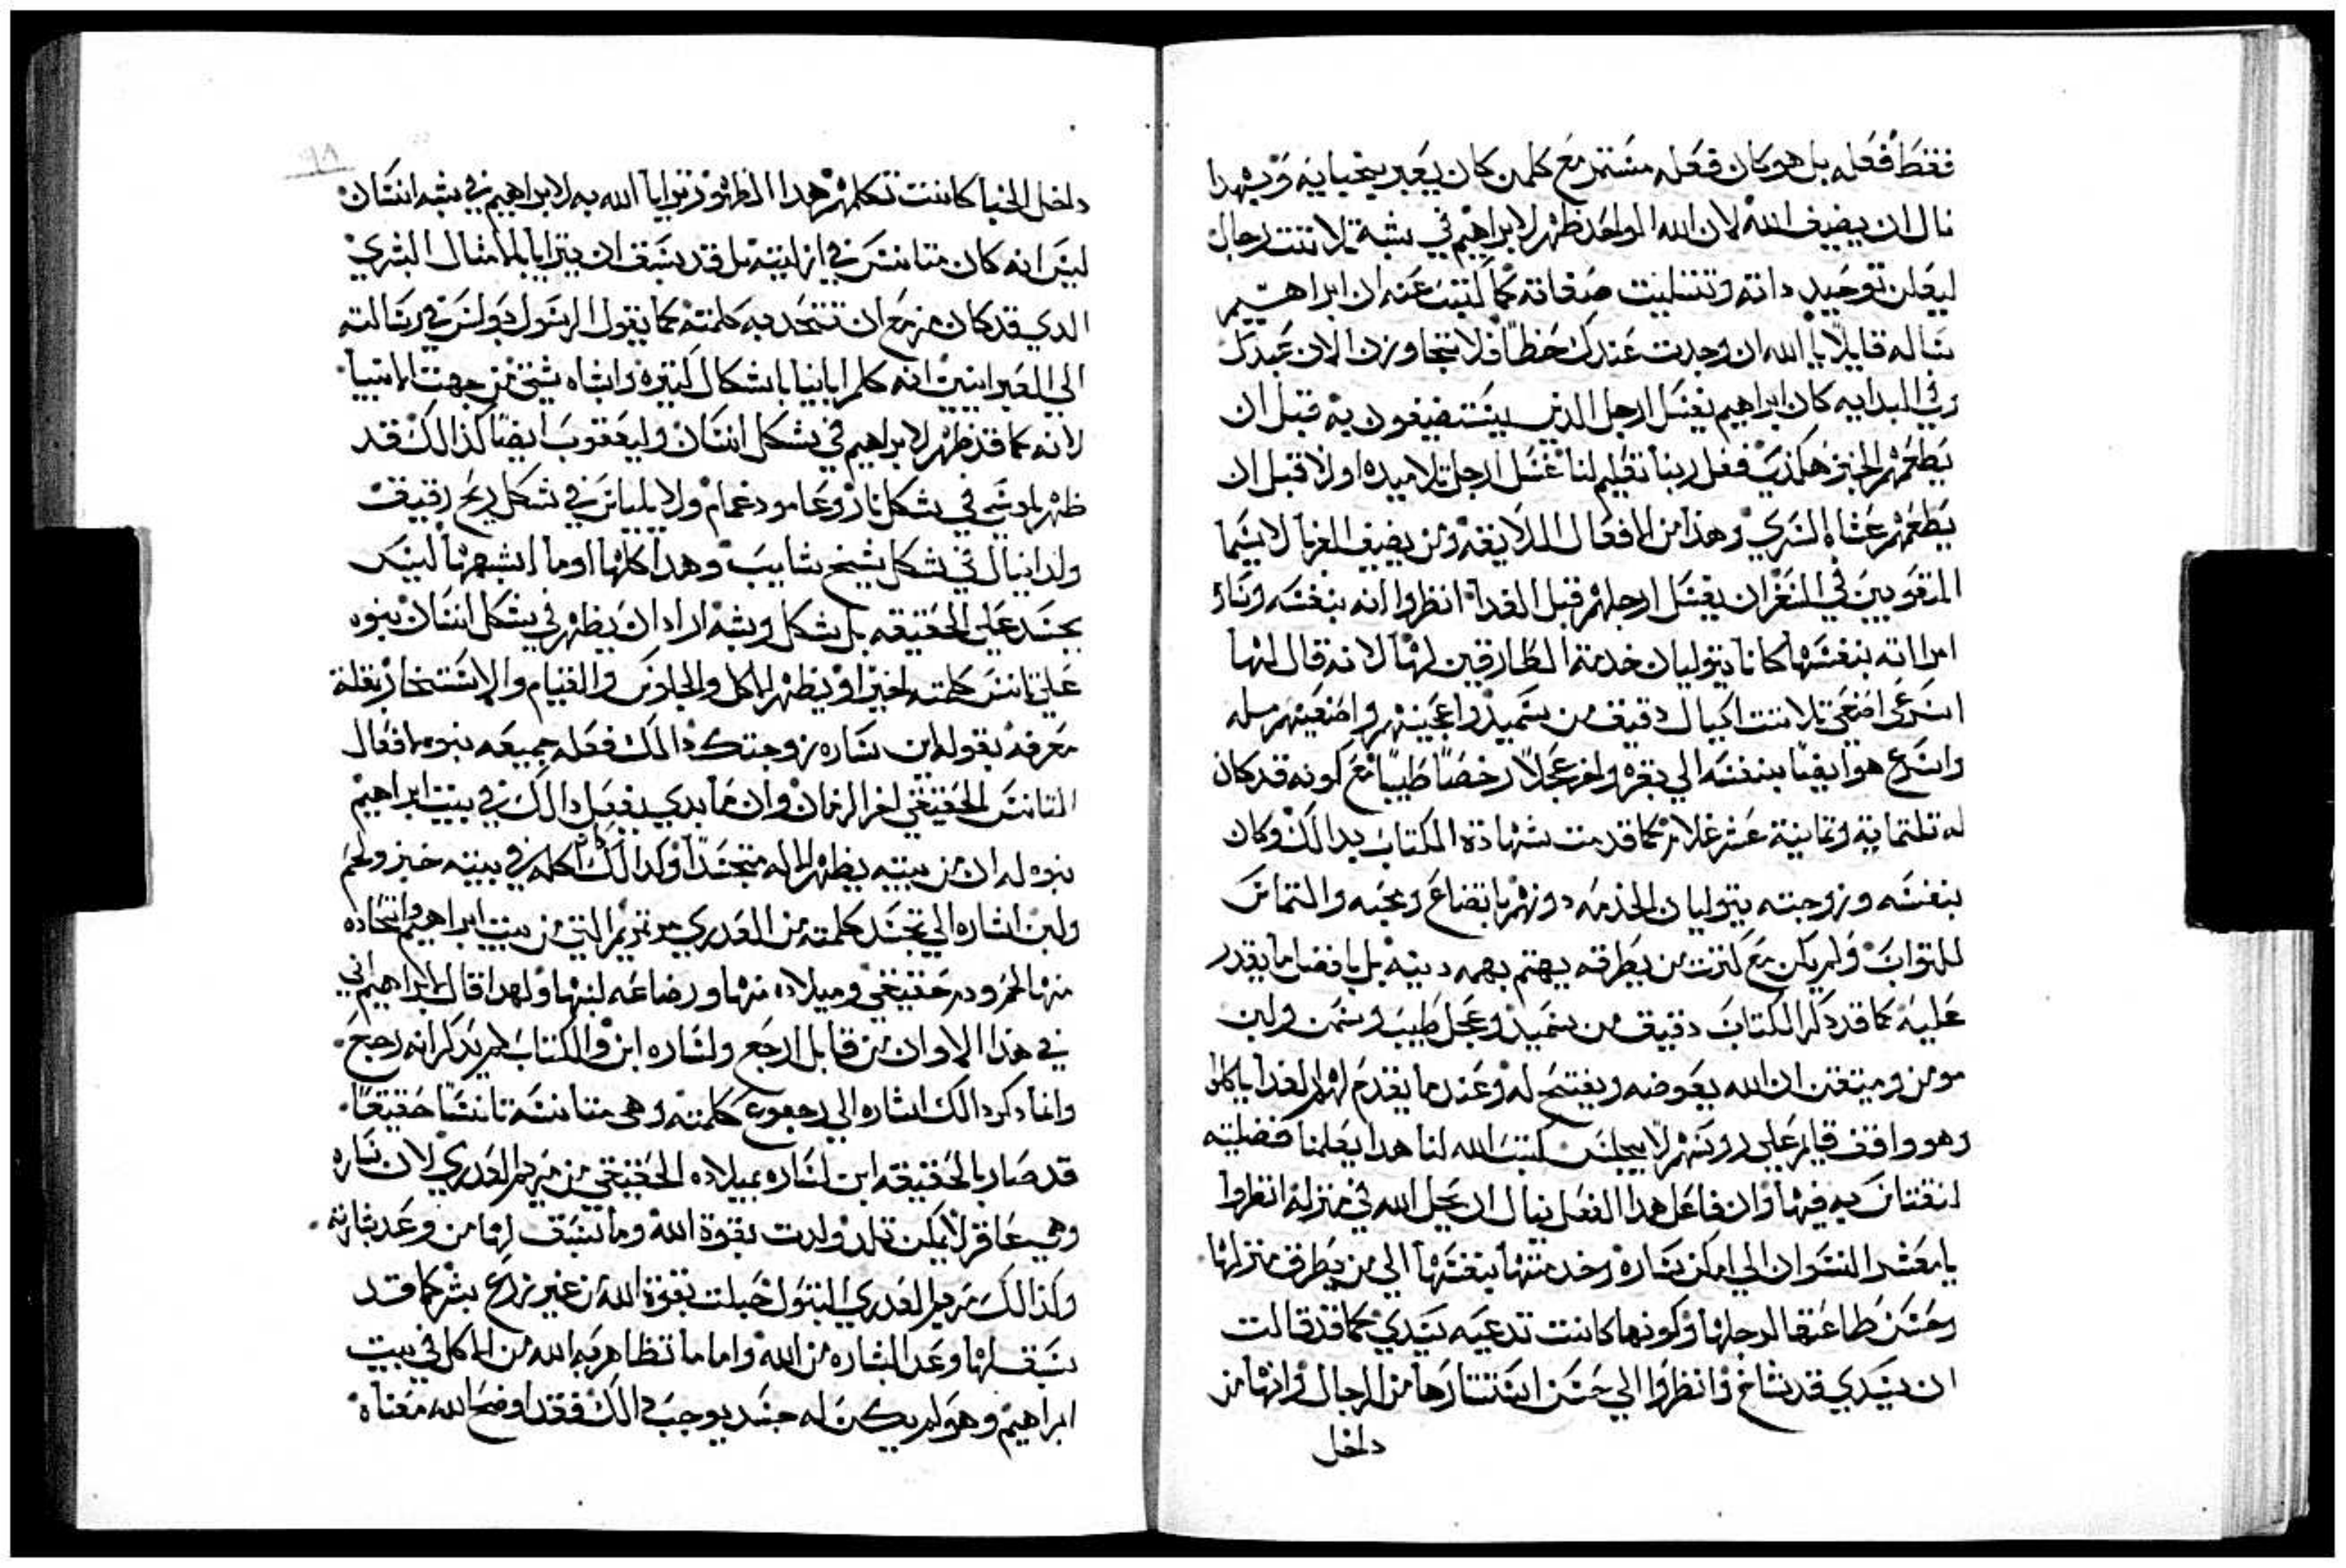 فقط فعله بل هو كان فعله مستمر مع كلمن كان يعبر بخبايه وبهدا
نال ان يضيف الله لان الله الواحد ظهر لابراهيم في شبه تلاتت رجال
ليعلن توحيد داته وتتليت صفاته كما كتب عنه ان ابراهيم
ساله قايلا يا الله ان وجدت عندك حظا فلا تتجاوزن الان عبدك
وفي البدايه كان ابراهيم يغسل ارجل الدين يستضيفون به قبل ان
يطعمهم الخبز هكذي فعل ربنا تعليم لنا غسل ارجل تلاميده اولا قبل ان
يطعمهم عشاه السري وهذا من الافعال اللايقه ومن يضيف الغربا لاسيما
المتعوبين في السفر ان يغسل ارجلهم قبل الغدا انظروا انه بنفسه وساره
امراته بنفسها كانا يتوليان خدمة الطارقين لهما لانه قال لها
اسرعي اصنعي تلاتت اكيال دقيق من سميد واعجنيهم واصنعيهم مله
واسرع هو ايضا بنفسه الي بقره واخد عجلا رخصا طيبا مع كونه قد كان
له تلتمايه وتمانية عشر غلام كما قدمت شهادة الكتاب بدالك وكان
بنفسه وزوجته يتوليان الخدمه دونهم باتضاع ومحبه والتماس
للتواب ولم يكن مع كترت من يطرقه يهتم بهمه دنيه بل بافضل ما يقدر
عليه كما قد دكر الكتاب دقيق من سميد وعجل طيب وسمن ولبن
مومن ومتيقن ان الله يعوضه ويفتح له وعند ما يقدم لهم الغدا ياكلوا
وهو واقف قايم علي روسهم لا يجلس كتب الله لنا هدا يعلمنا فضليته
لنقتاس به فيها وان فاعل هدا الفعل ينال ان يحل الله في منزله انظروا
يا معشر النسوان الي امكن ساره وخدمتها بنفسها الي من يطرق منزلها
وحسن طاعتها لرجلها وكونها كانت تدعيه سيدي كما قد قالت
ان سيدي قد شاخ وانظروا الي حسن استتارها من الرجال وانها من
داخل
داخل الخبا كانت تكلمهم هدا الظهور ترايا الله به لابراهيم في شبه انسان
ليس انه كان متانس في ازليته بل قد سبق ان يترايا بالامتال البشري
الدي قد كان مزمع ان تتحد به كلمته كما يقول الرسول بولس في رسالته
الي العبرانيين انه كلم ابانيا باشكال كتيره واشباه شتي من جهت الانبيا
لانه كما قد ظهر لابراهيم في شكل انسان وليعقوب ايضا كذالك قد
ظهر لموسي في شكل نار وعامود غمام ولايلياس في شكل ريح رقيق
ولدانيال في شكل شيخ شايب وهدا كلها وما اشبهها ليس
بجسد علي الحقيقه بل بشكل وشبه اراد ان يظهر في شكل انسان بنبوه
علي تانس كلمته اخيرا ويظهر الاكل والجلوس والقيام والاستخبار بقلة
معرفه بقوله اين ساره زوجتك دالك فعله جميعه بنبوه افعال
التانس الحقيقي اخر الزمان وان مابدي يفعل دالك في بيت ابراهيم
نبوه له ان من بيته يظهر الاله متجسدا وكدالك اكله في بيته خبز ولحم
ولبن اشاره الي تجسد كلمته من العدري مرتمريم التي من بيت ابراهيم واتحاده
منها لحم ودم حقيقي وميلاده منها ورضاعه لبنها ولهدا قال لابراهيم اني
في هذا الاوان من قابل ارجع ولساره ابن والكتاب لم يدكر انه رجع
وانما دكر دالك اشاره الي رجوع كلمته وهي متانسه تانسا حقيقا
قد صار بالحقيقه ابن لساره بميلاده الحقيقي من مريم العدري لان ساره
وهي عاقر لا يمكن تلد ولدت بقوة الله وما سبق لها من وعد بشارته
وكذالك مريم العدري البتول حبلت بقوة الله من غير زرع بشر كما قد
سبق لها وعد البشاره من الله واما ما تظاهر به الله من الاكل في بيت
ابراهيم وهو لم يكن له جسد يوجب دالك فقد اوضح الله معناه